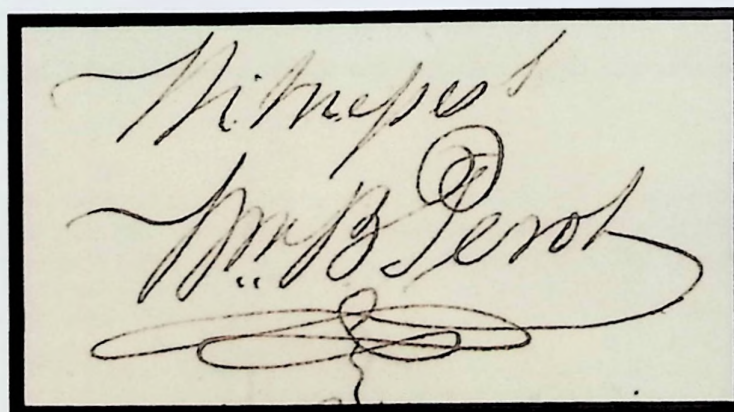 Witness
Wm B Perot